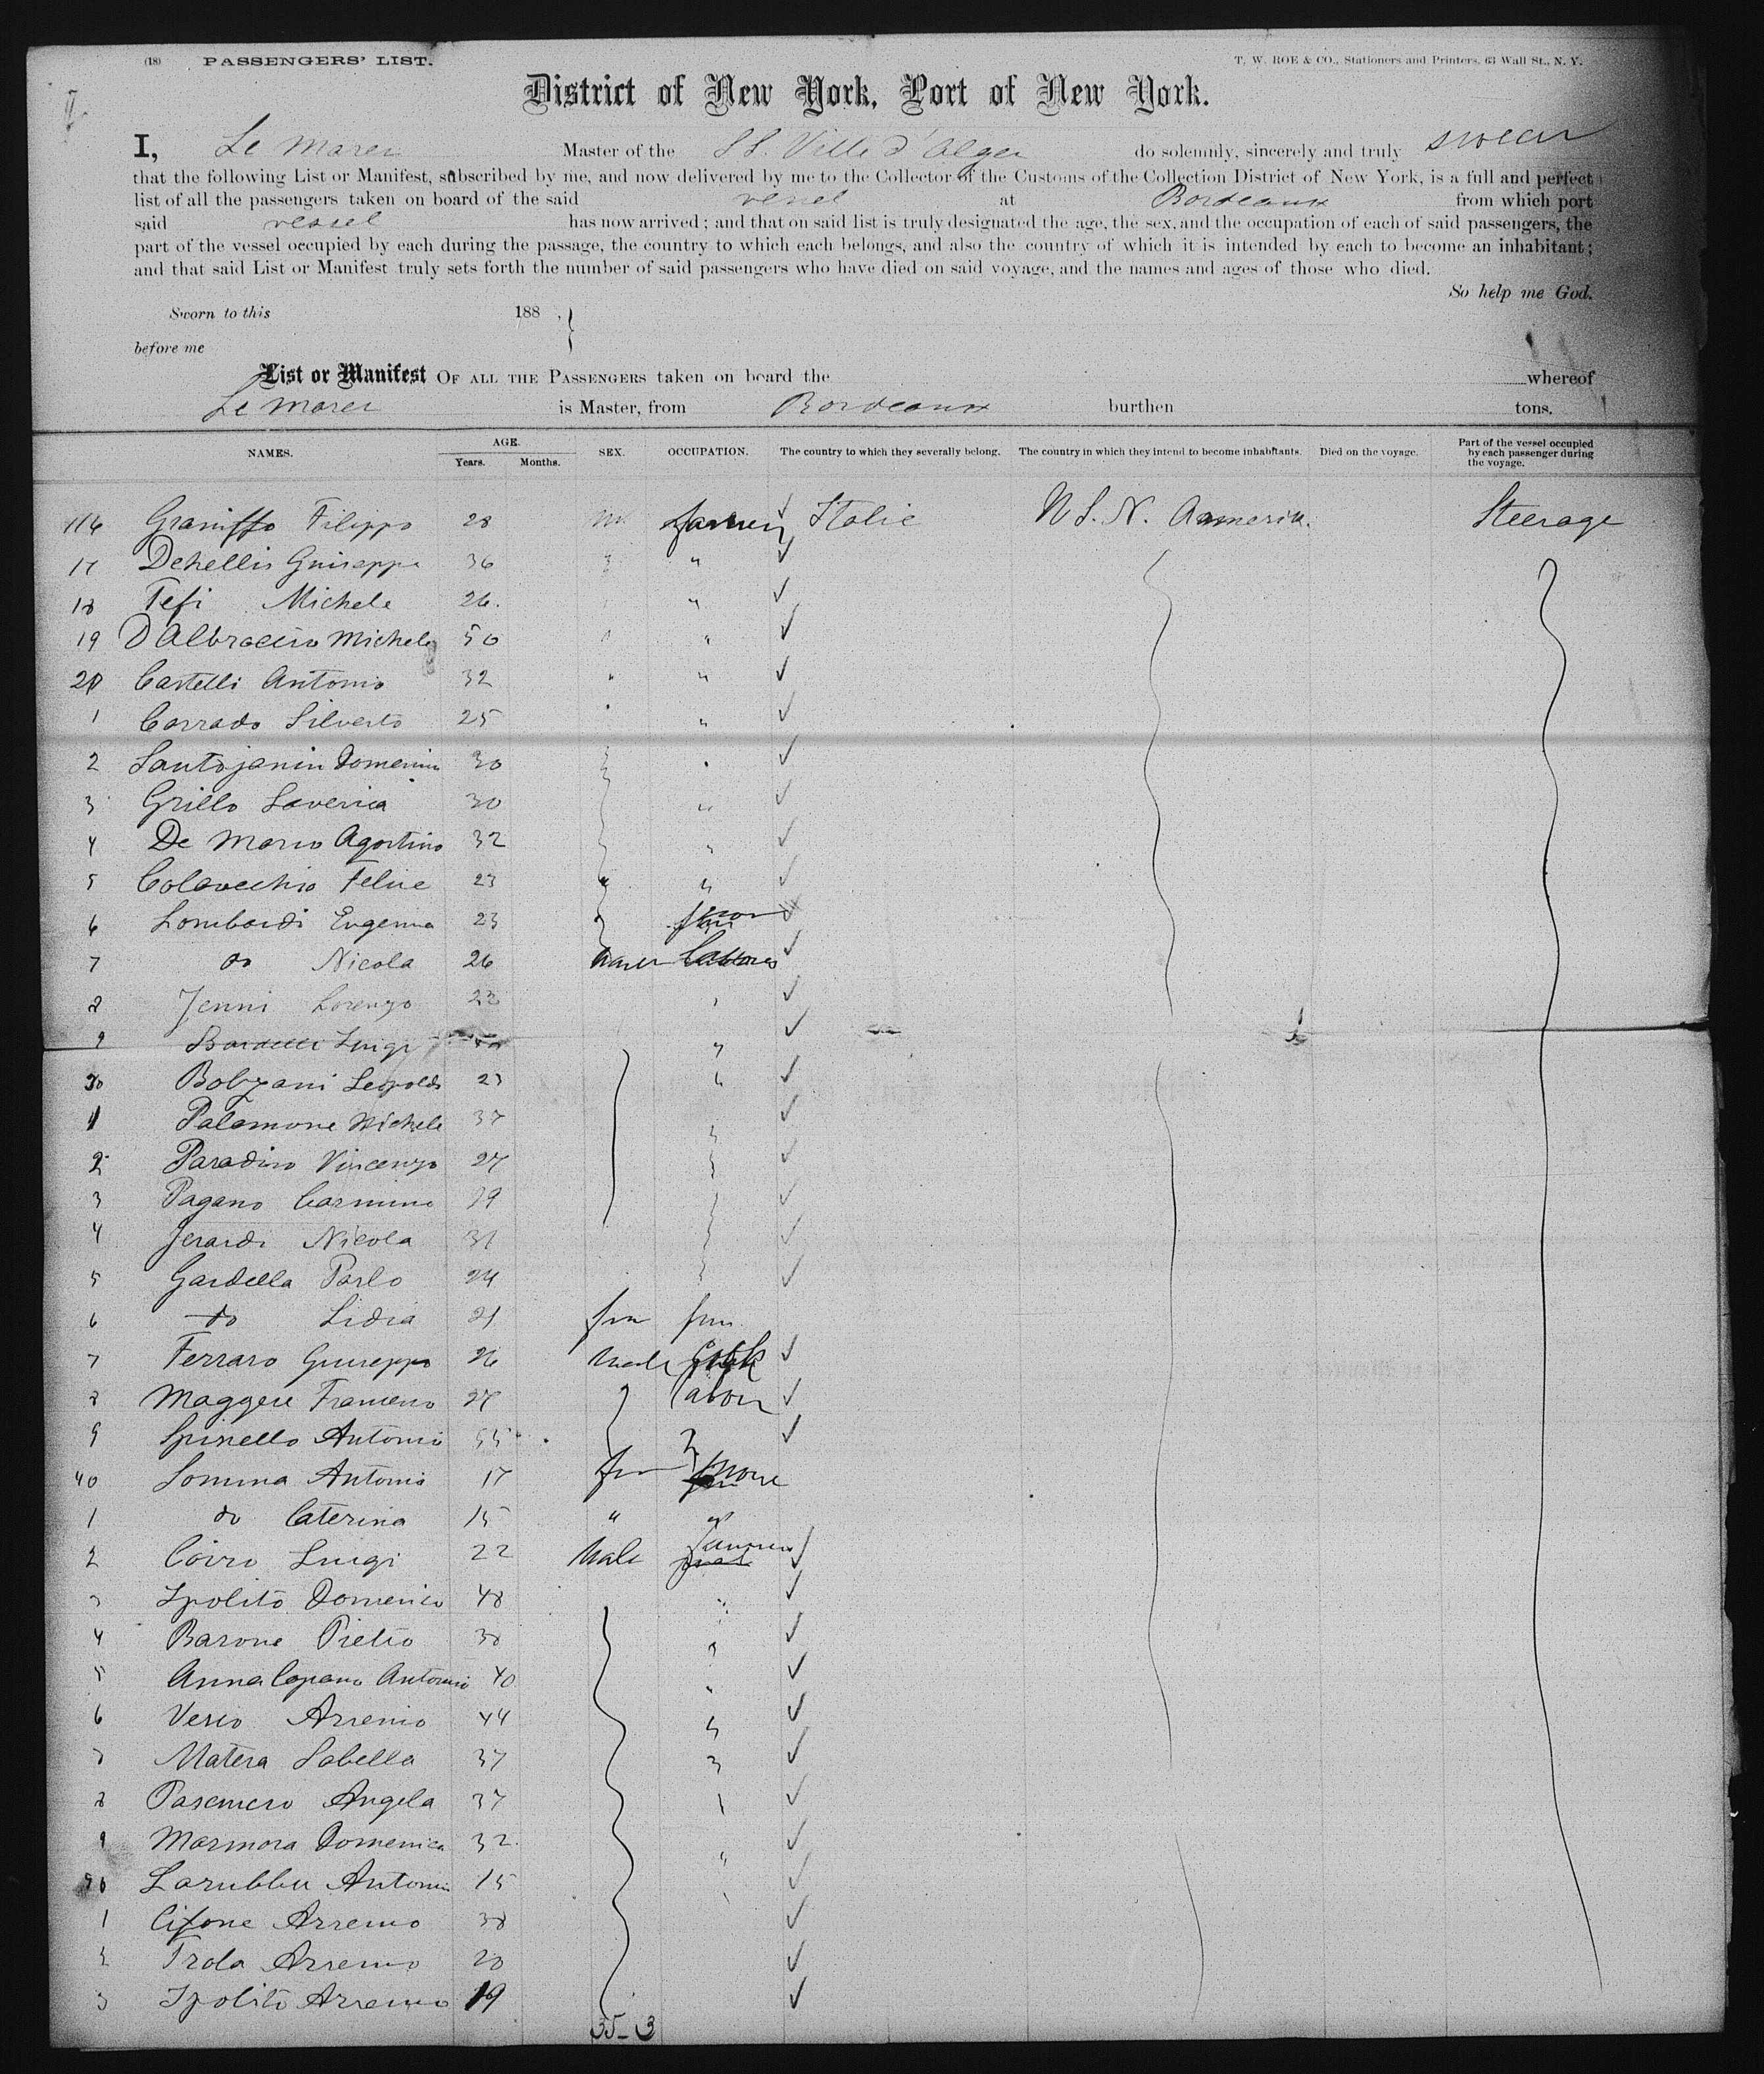 (18) PASSENGERS' LIST. T. W. ROE & CO., Stationers and Printers, 63 Wall St., N. Y.
District of New York, Port of New York.
I, Le Marer Master of the SS. Ville d'Alger do solemnly, sincerely and truly swear
that the following List or Manifest, subscribed by me, and now delivered by me to the Collector of the Customs of the Collection District of New York, is a full and perfect
list of all the passengers taken on board of the said vessel at Bordeaux from which port
said vessel has now arrived; and that on said list is truly designated the age, the sex, and the occupation of each of said passengers, the
part of the vessel occupied by each during the passage, the country to which each belongs, and also the country of which it is intended by each to become an inhabitant;
and that said List or Manifest truly sets forth the number of said passengers who have died on said voyage, and the names and ages of those who died.
So help me God.
Sworn to this 188 ,
before me
List or Manifest OF ALL THE PASSENGERS taken on board the whereof
Le Marer is Master, from Bordeaux burthen tons.
NAMES. AGE. Years. Months. SEX. OCCUPATION. The country to which they severally belong. The country in which they intend to become inhabitants. Died on the voyage. Part of the vessel occupied by each passenger during the voyage.
116 Graniffo Filippo 28 m farmer Italie U S. N. Ammerika. Steerage
17 Dehellis Guiseppe 36 "
18 Tefi Michele 26. "
19 D'Albraccio Michele 50 "
20 Castelli Antonio 32 " "
1 Corrado Silverto 25 "
2 Santojanin Domenico 30
3 Grillo Saveria 30 "
4 De Marco Agostino 32 "
5 Colavecchio Felice 23 " "
6 Lombardi Eugenia 23
7 do Nicola 26 male Labourer
8 Jenni Lorenzo 22
9 Luigi "
30 Bolzani Leopoldo 23 "
1 Palamone Michele 37
2 Paradiso Vincenzo 27
3 Pagano Carmino 29
4 Jerardi Nicola 31
5 Gardella Parlo 24
6 do Lidia 21 fem fem
7 Ferraro Guiseppe 26 male Cook
8 Maggese Francesco 27 labour
9 Spinello Antonio 55
40 Somma Antonio 17 fem none
1 do Caterina 15 " "
2 Coiro Luigi 22 Male farmer
3 Ipolito Domenico 48 "
4 Barone Pietro 38 "
5 Anna Copano Antonio 40 "
6 Verio Arsenio 44 "
7 Matera Sabella 37
8 Pasemero Angela 37
9 Marmora Domenica 32. "
50 Larubbu Antonio 15
1 Cifone Arsenio 38
2 Trola Arsenio 20
3 Ipolito Arsenio 19
35-3